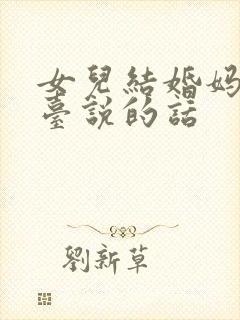 女兒結婚媽
臺說的話
劉新草